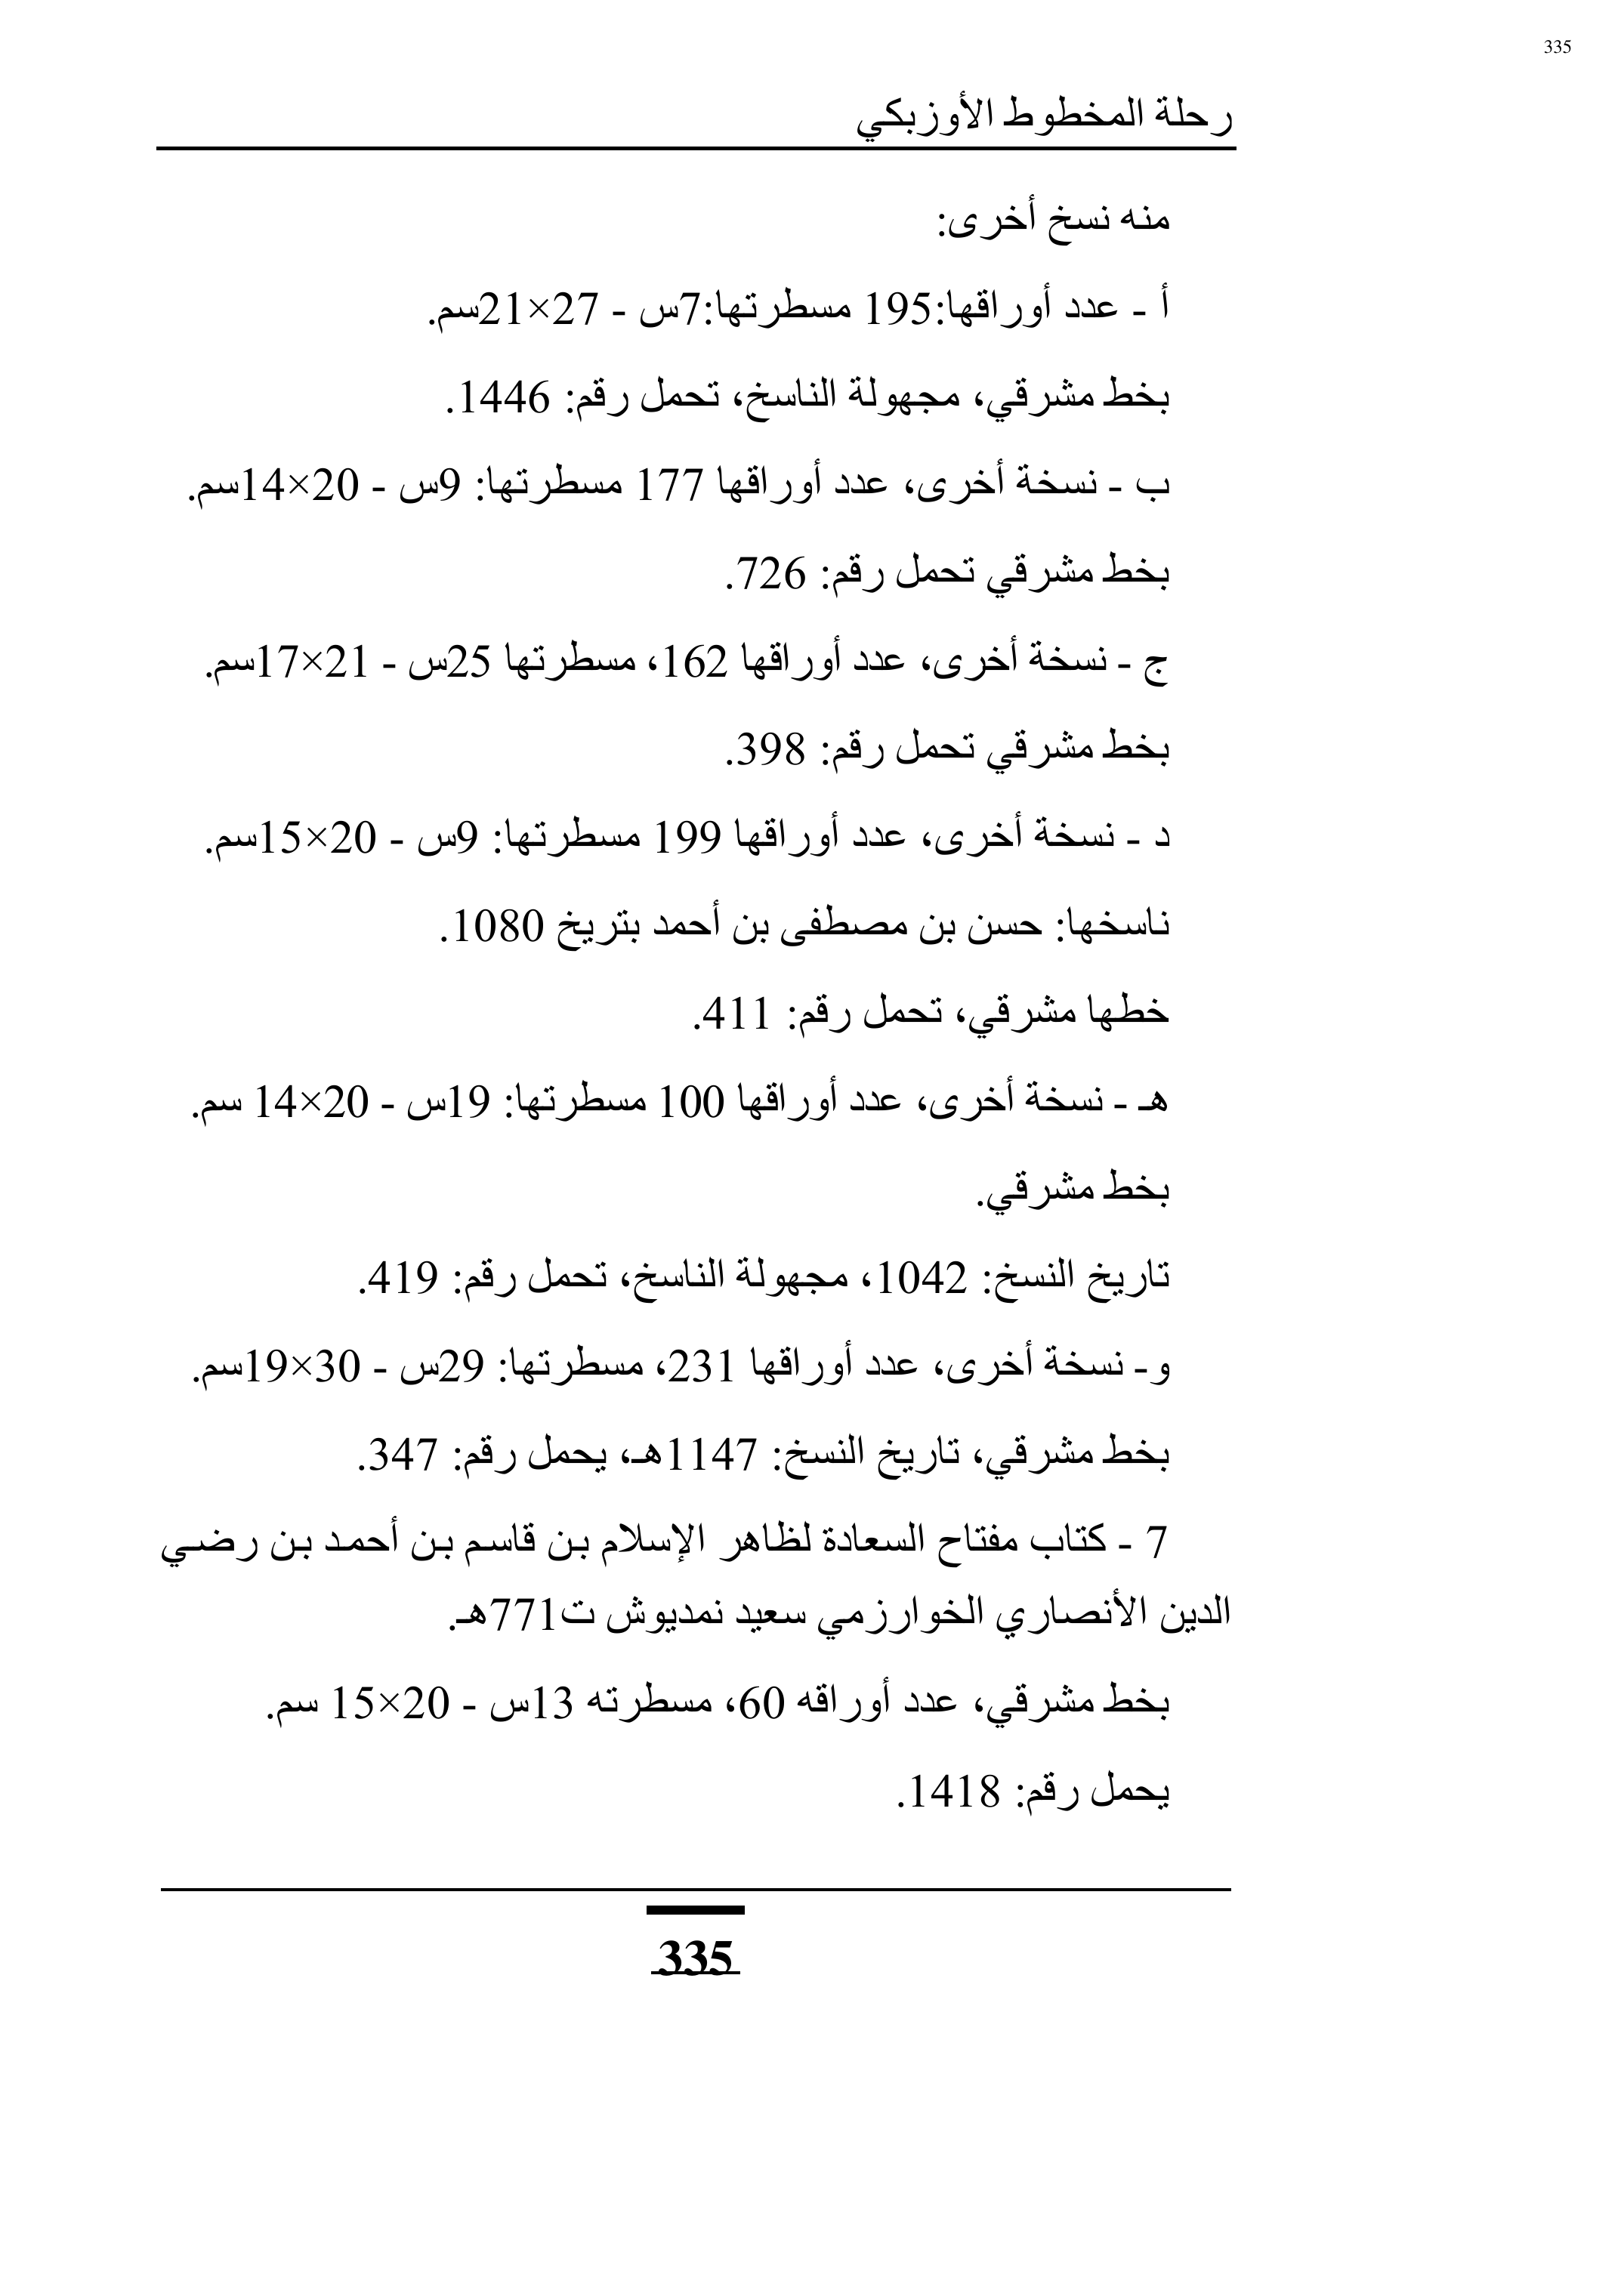 335
رحلة المخطوط الأوزبكي
منه نسخ أخرى:
أ - عدد أوراقها:195 مسطرتها:7س - 27×21سم.
بخط مشرقي، مجهولة الناسخ، تحمل رقم: 1446.
ب - نسخة أخرى، عدد أوراقها 177 مسطرتها: 9س - 20×14سم.
بخط مشرقي تحمل رقم: 726.
ج - نسخة أخرى، عدد أوراقها 162، مسطرتها 25س - 21×17سم.
بخط مشرقي تحمل رقم: 398.
د - نسخة أخرى، عدد أوراقها 199 مسطرتها: 9س - 20×15سم.
ناسخها: حسن بن مصطفى بن أحمد بتريخ 1080.
خطها مشرقي، تحمل رقم: 411.
هـ - نسخة أخرى، عدد أوراقها 100 مسطرتها: 19س - 20×14 سم.
بخط مشرقي.
تاريخ النسخ: 1042، مجهولة الناسخ، تحمل رقم: 419.
و- نسخة أخرى، عدد أوراقها 231، مسطرتها: 29س - 30×19سم.
بخط مشرقي، تاريخ النسخ: 1147هـ، يحمل رقم: 347.
7 - كتاب مفتاح السعادة لظاهر الإسلام بن قاسم بن أحمد بن رضي
الدين الأنصاري الخوارزمي سعيد نمديوش ت771هـ.
بخط مشرقي، عدد أوراقه 60، مسطرته 13س - 20×15 سم.
يحمل رقم: 1418.
335